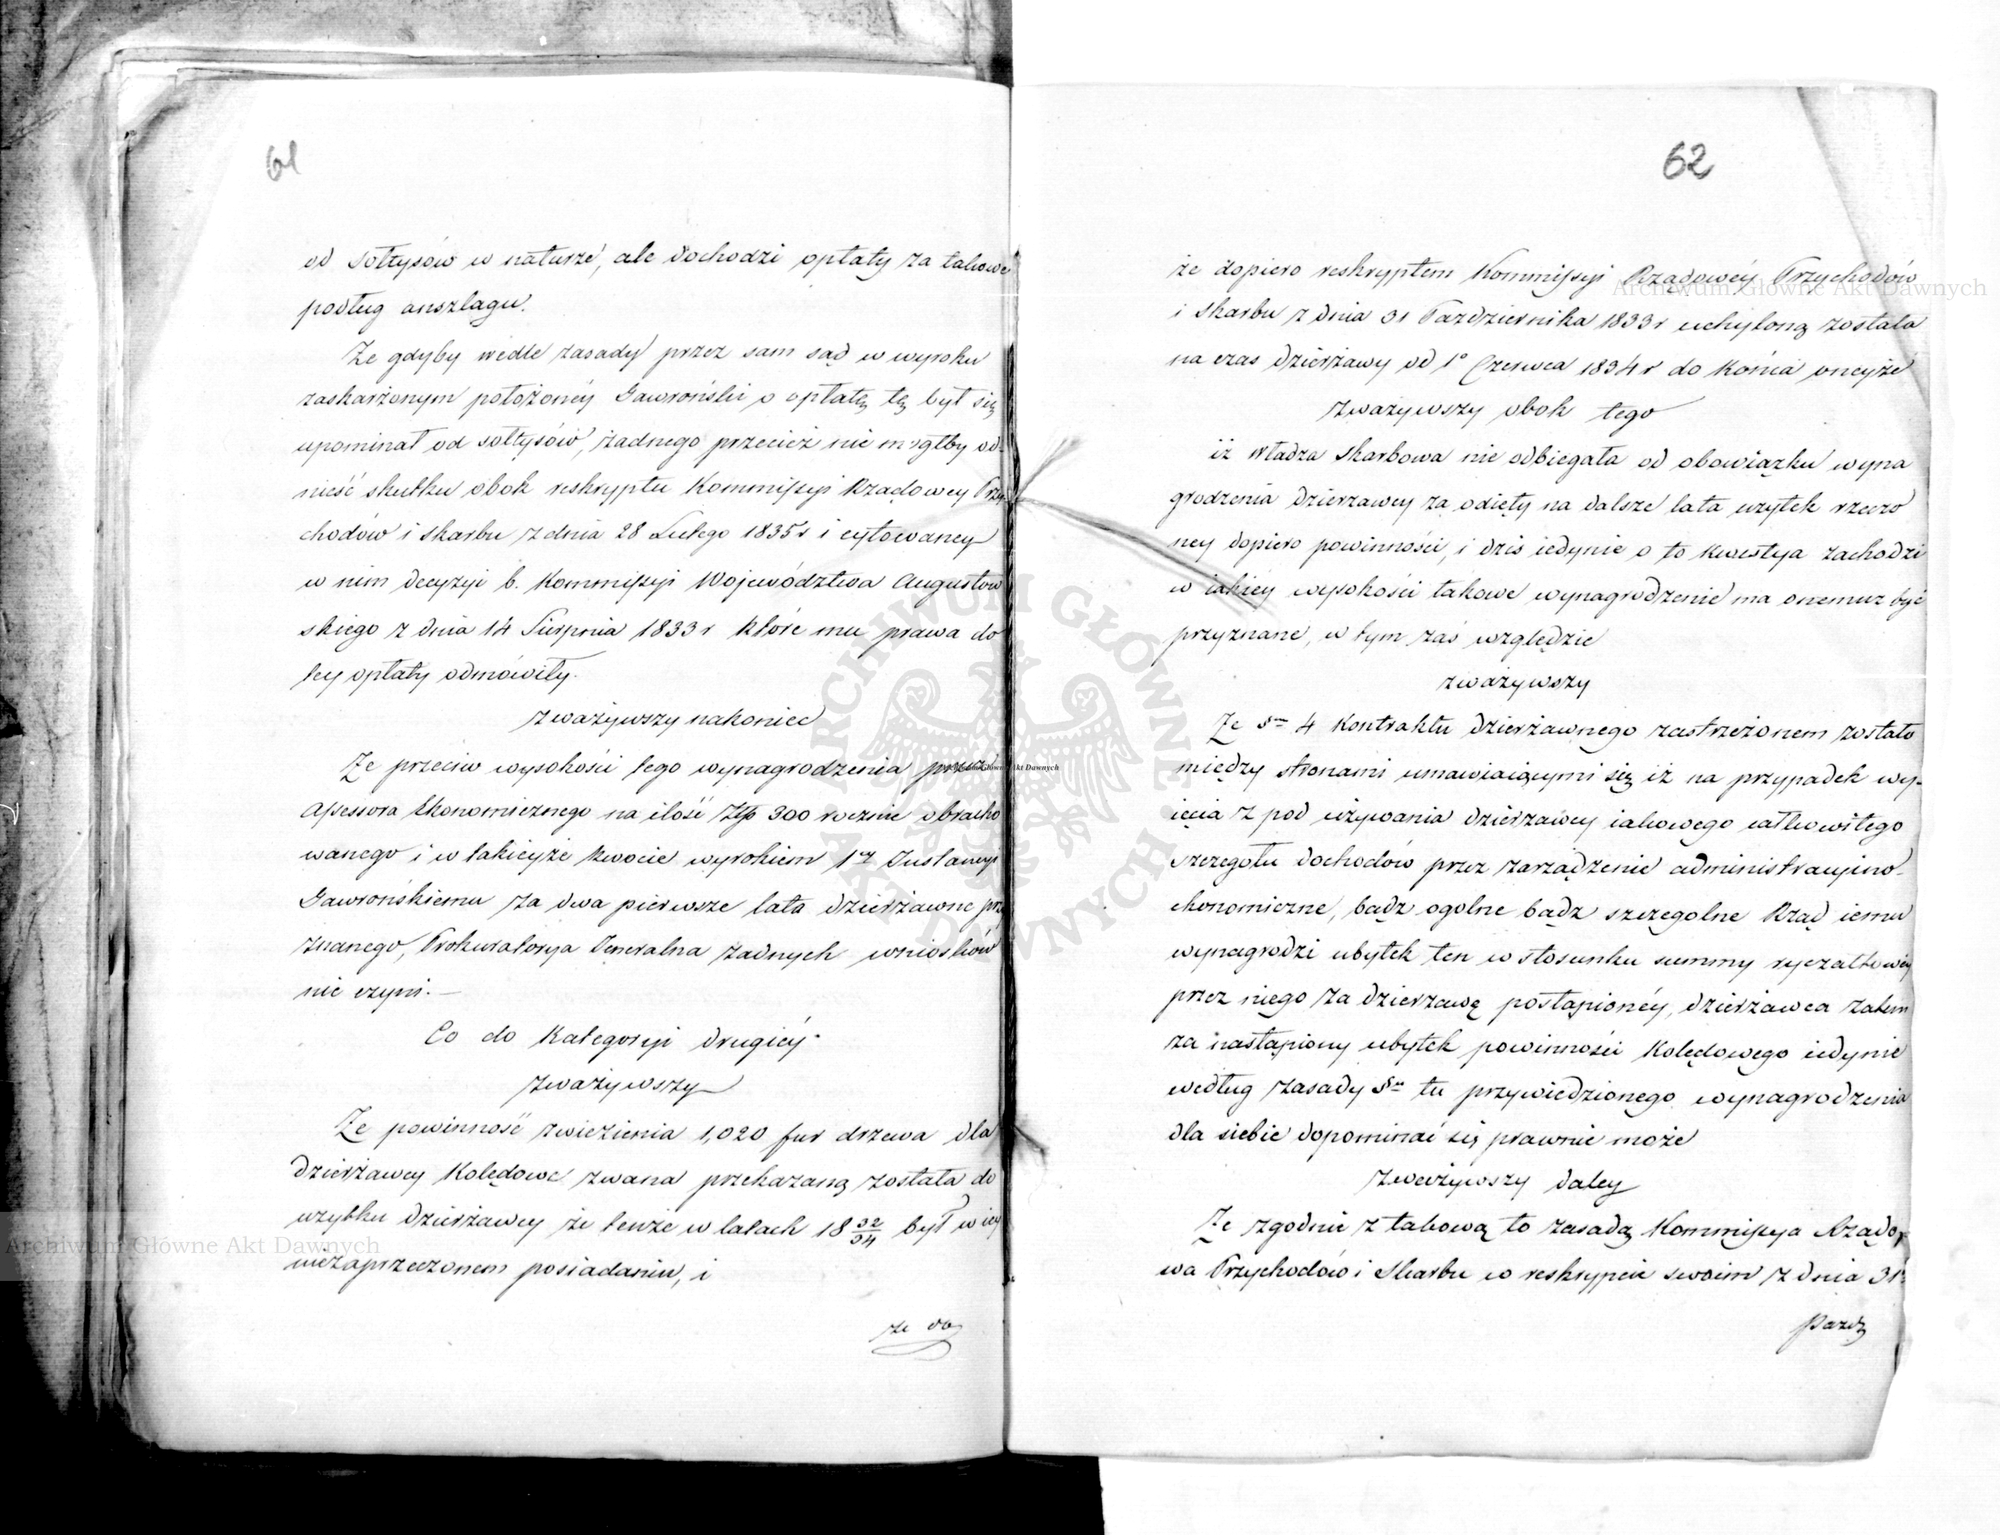 61
od Sołtysów w naturze, ale dochodzi opłaty za takowe
podług anszlagu.
Ze gdyby wedle zasady przez sam sąd w wyroku
zaskarżonym położoney Gawroński o opłatę tę był się
upominał od sołtysów, żadnego przecież nie mógłby od-
nieść skutku obok reskryptu Kommissyi Rządowey Przy-
chodów i Skarbu z dnia 28 Lutego 1835 r i cytowaney
w nim decyzyi b. Kommissyi Województwa Augustow
skiego z dnia 14 Sierpnia 1833 r które mu prawa do
tey opłaty odmówiły.
zważywszy nakoniec
Ze przeciw wysokości tego wynagrodzenia przez
Assessora Ekonomicznego na ilość Złp 300 rocznie obracho
wanego i w takieyże kwocie wyrokiem 1ey Instancyi
Gawrońskiemu za dwa pierwsze lata dzierżawne prz
znanego, Prokuratorya Generalna żadnych wniosków
nie czyni. —
Co do Kategoryi drugiéy.
zważywszy
Ze powinność zwiezienia 1,020 fur drzewa dla
dzierżawcy Kolędowe zwana przekazaną została do
użytku dzierżawcy że tenże w latach 18 32/34 był w iey
niezaprzeczonem posiadaniu, i
że do
62
że dopiero reskryptem Kommissyi Rządowéy Przychodów
i Skarbu z dnia 31 Października 1833 r uchyloną została
na czas dzierżawy od 1o Czerwca 1834 r do końca oneyże
zważywszy obok tego
iż władza Skarbowa nie odbiegała od obowiązku wyna
grodzenia dzierżawcy za odięty na dalsze lata użytek rzeczo
ney dopiero powinności, i dziś iedynie o to kwestya zachodzi
w iakiey wysokości takowe wynagrodzenie ma onemuż być
przyznane, w tym zaś względzie
zważywszy
Ze § 4 Kontraktu dzierżawnego zastrzeżonem zostało
między stronami umawiaiącymi się iż na przypadek wy-
ięcia z pod używania dzierżawcy iakowego całkowitego
szczegółu dochodów przez zarządzenie administracyino-
ekonomiczne, bądź ogolne bądź szczególne Rząd iemu
wynagrodzi ubytek ten w stosunku summy ryczałtowey
przez niego za dzierżawę postąpionéy, dzierżawca zatem
za nastąpiony ubytek powinności Kolędowego iedynie
według zasady §u tu przywiedzionego wynagrodzenia
dla siebie dopominać się prawnie może
zważywszy daley
Ze zgodnie z takową to zasadą Kommissya Rządo-
wa Przychodów i Skarbu w reskrypcie swoim z dnia 31
Paźdz
Archiwum Główne Akt Dawnych
Archiwum Główne Akt Dawnych
Główne Akt Dawnych
ARCHIWUM GŁÓWNE AKT DAWNYCH